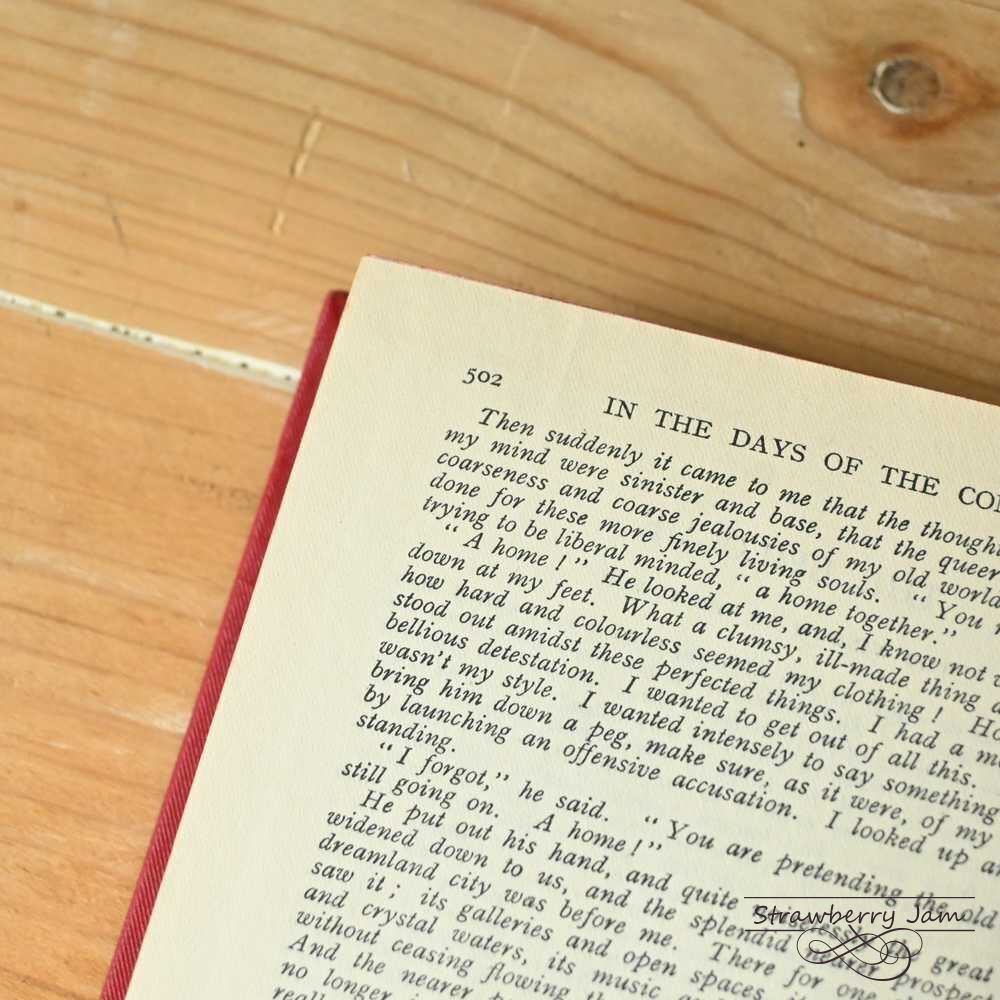 502
IN THE DAYS OF THE
Then suddenly it came to me that the
my mind were sinister and base, that the queer
coarseness and coarse jealousies of my old world
done for these more finely living souls. “You
trying to be liberal minded, “a home together.”
“A home!” He looked at me, and, I know not
down at my feet. What a clumsy, ill-made thing
how hard and colourless seemed my clothing!
stood out amidst these perfected things. I had a
bellious detestation. I wanted to get out of all this.
wasn't my style. I wanted intensely to say something
bring him down a peg, make sure, as it were, of my
by launching an offensive accusation. I looked up
standing.
“I forgot,” he said. “You are pretending the old
still going on. A home!”
He put out his hand, and quite noiselessly the great
widened down to us, and the splendid nearer
dreamland city was before me. There for one
saw it; its galleries and open spaces, its
and crystal waters, its music
without ceasing flowing
And the nearer
no longer
Strawberry Jam